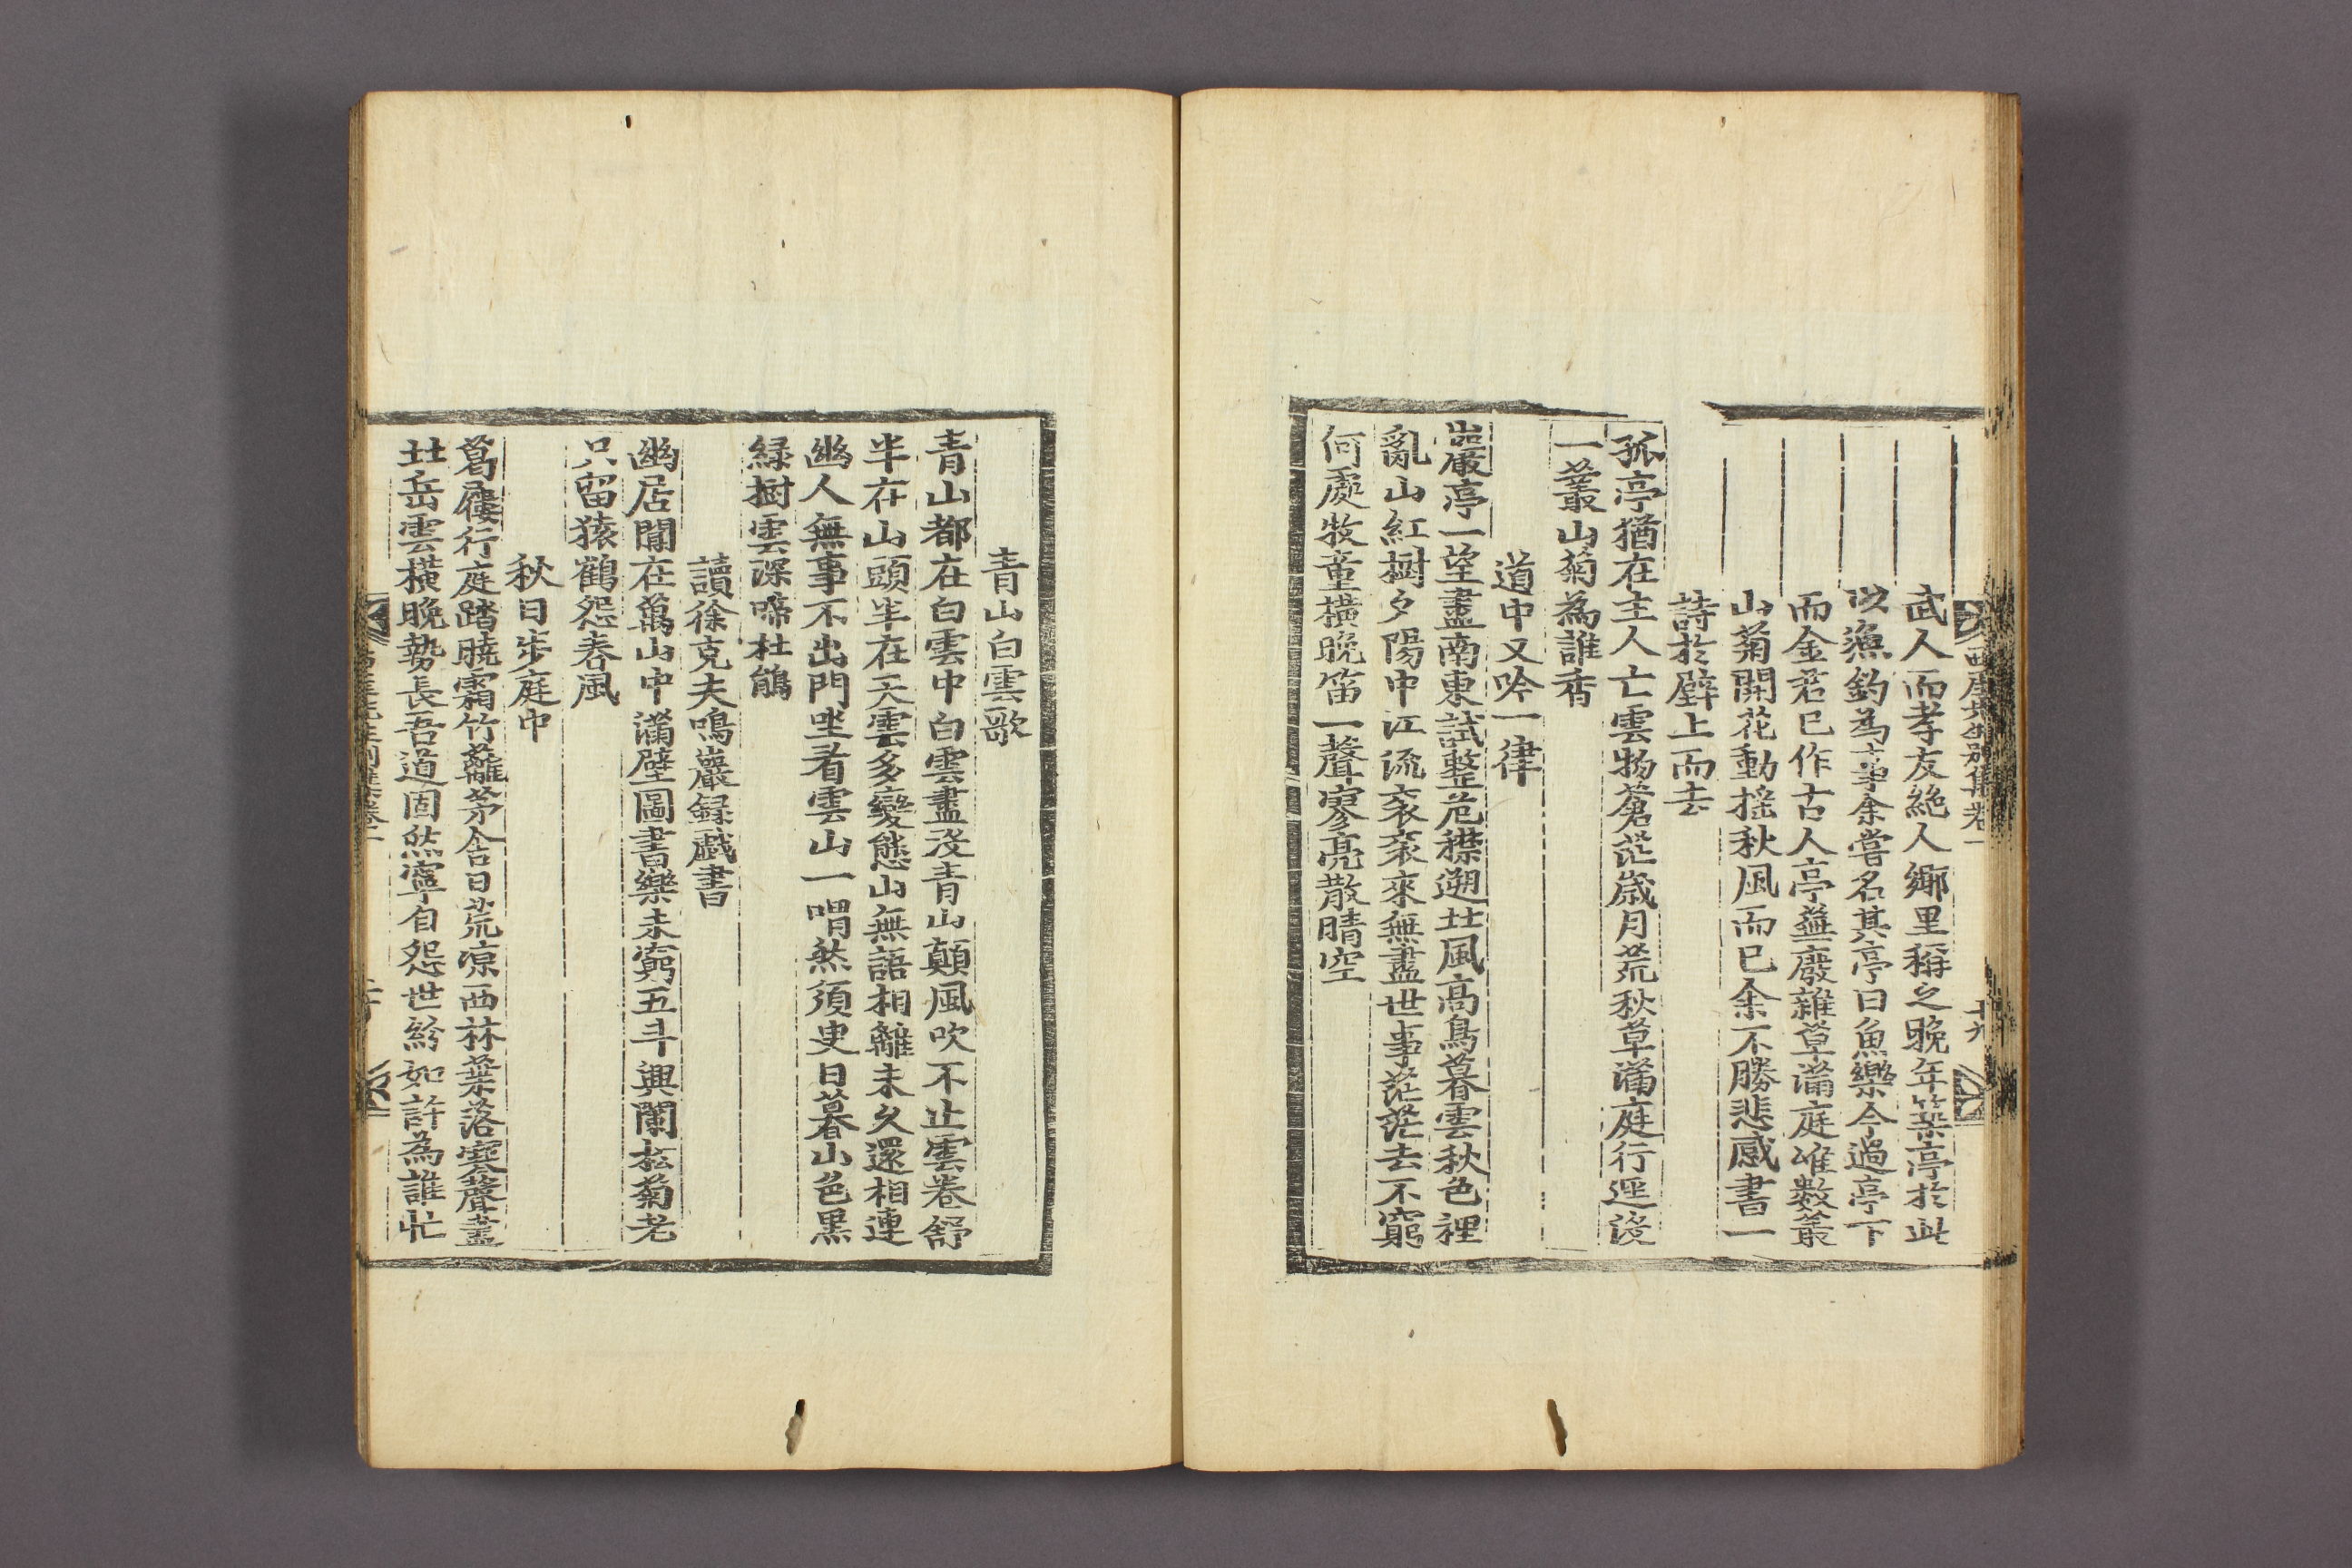 武人而孝友絶人鄉里稱之晚年築亭於此
以漁釣為事余嘗名其亭曰魚樂今過亭下
而金君已作古人亭蕪廢雜草滿庭唯數叢
山菊開花動搖秋風而已余不勝悲感書一
詩於壁上而去
孤亭猶在主人亡雲物蒼茫歲月荒秋草滿庭行逕沒
一叢山菊為誰香
道中又吟一律
巖亭一望盡南東試整危襟遡北風高鳥暮雲秋色裡
亂山紅樹夕陽中江流衮衮來無盡世事茫茫去不窮
何處牧童橫晚笛一聲寥亮散晴空
青山白雲歌
青山都在白雲中白雲盡沒青山顛風吹不止雲卷舒
半在山頭半在天雲多變態山無語相離未久還相連
幽人無事不出門坐看雲山一喟然須臾日暮山色黑
緑樹雲深啼杜鵑
讀徐克夫鳴巖録戲書
幽居聞在萬山中滿壁圖書樂未窮五斗興闌松菊老
只留猿鶴怨春風
秋日步庭中
葛屨行庭踏曉霜竹籬茅舍日荒凉西林葉落寒聲盡
北岳雲橫晚勢長吾道固然寧自怨世紛如許為誰忙